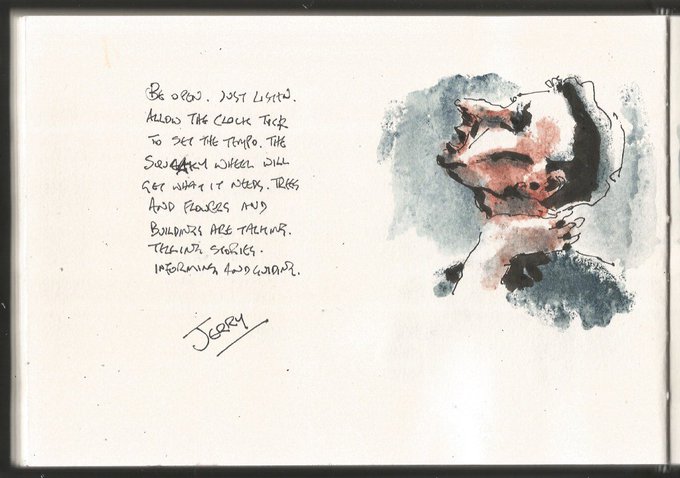 BE OPEN. JUST LISTEN.
ALLOW THE CLOCK TICK
TO SET THE TEMPO. THE
SQUEAKY WHEEL WILL
GET WHAT IT NEEDS. TREES
AND FLOWERS AND
BUILDINGS ARE TALKING.
TELLING STORIES.
INFORMING AND GUIDING.
JERRY